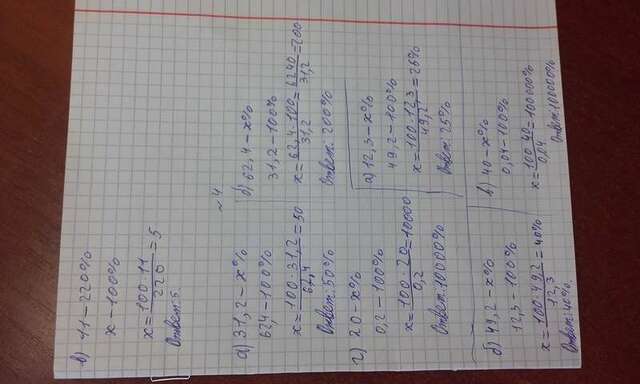 в) 11 – 220%
x – 100%
x = 100·11 / 220 = 5
Ответ: 5.
~ 4
а) 31,2 – x%
62,4 – 100%
x = 100·31,2 / 62,4 = 50
Ответ: 50%
б) 62,4 – x%
31,2 – 100%
x = 62,4·100 / 31,2 = 6240 / 31,2 = 200
Ответ: 200%
г) 20 – x%
0,2 – 100%
x = 100·20 / 0,2 = 10000
Ответ: 10000%
а) 12,3 – x%
49,2 – 100%
x = 100·12,3 / 49,2 = 25%
Ответ: 25%
б) 49,2 – x%
12,3 – 100%
x = 100·49,2 / 12,3 = 40%
Ответ: 40%.
в) 40 – x%
0,04 – 100%
x = 100·40 / 0,04 = 100000%
Ответ: 100000%